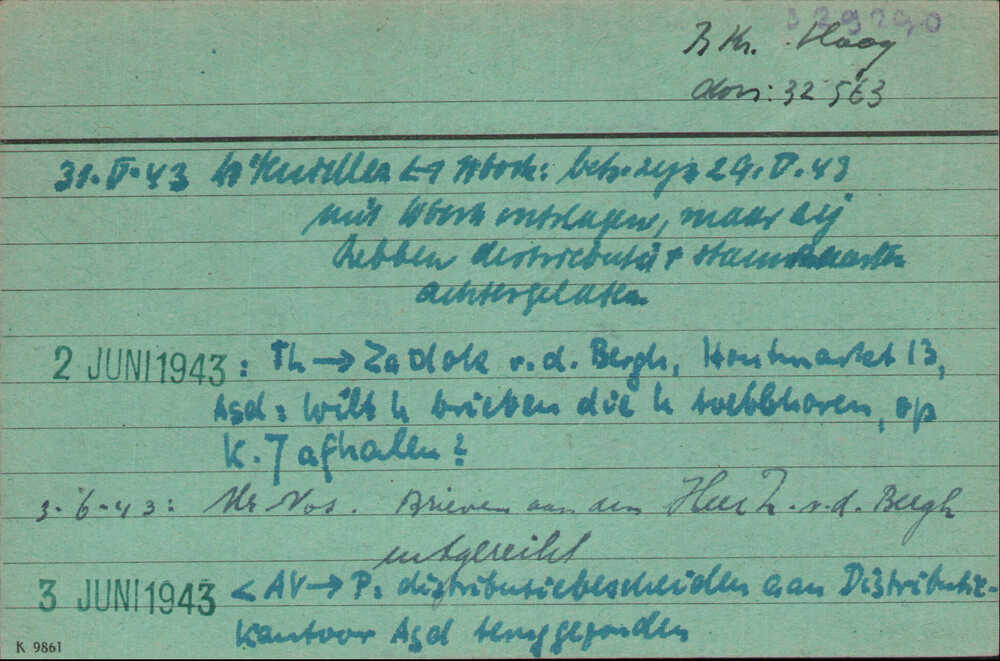 329290
Kr. Haag
dos: 32563
31.V.43 betr. zijn 29.V.43
uit Wbork ontslagen, maar zij
hebben distributie + stamkaarten
achtergelaten
2 JUNI 1943 : Th → Zadok v.d. Bergh, Houtmarkt 13,
Asd: Wilt u brieven die u toebehoren, op
K. 7 afhalen?
3-6-43: Mr Vos. Brieven aan den Heer Z. v.d. Bergh
uitgereikt
3 JUNI 1943 < AV → P: distributiebescheiden aan Distributie-
kantoor Asd teruggezonden
K 9861